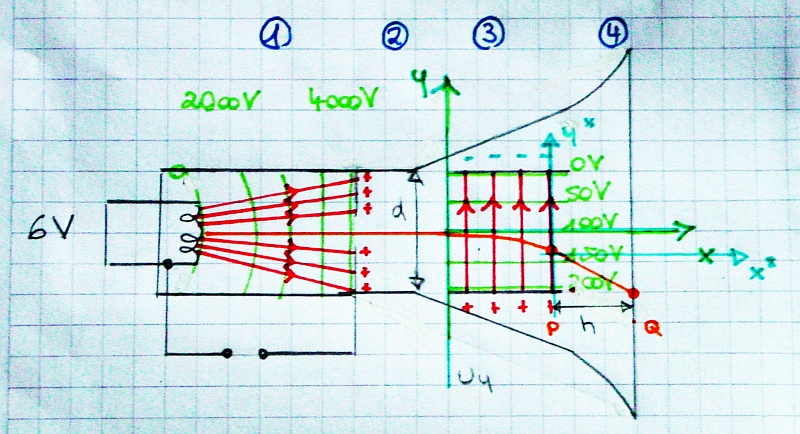 ① ② ③ ④
2000V 4000V
y
y*
0V
50V
100V
150V
200V
6V
d
x
x*
+ + + + + +
+ + + +
P h Q
Uy